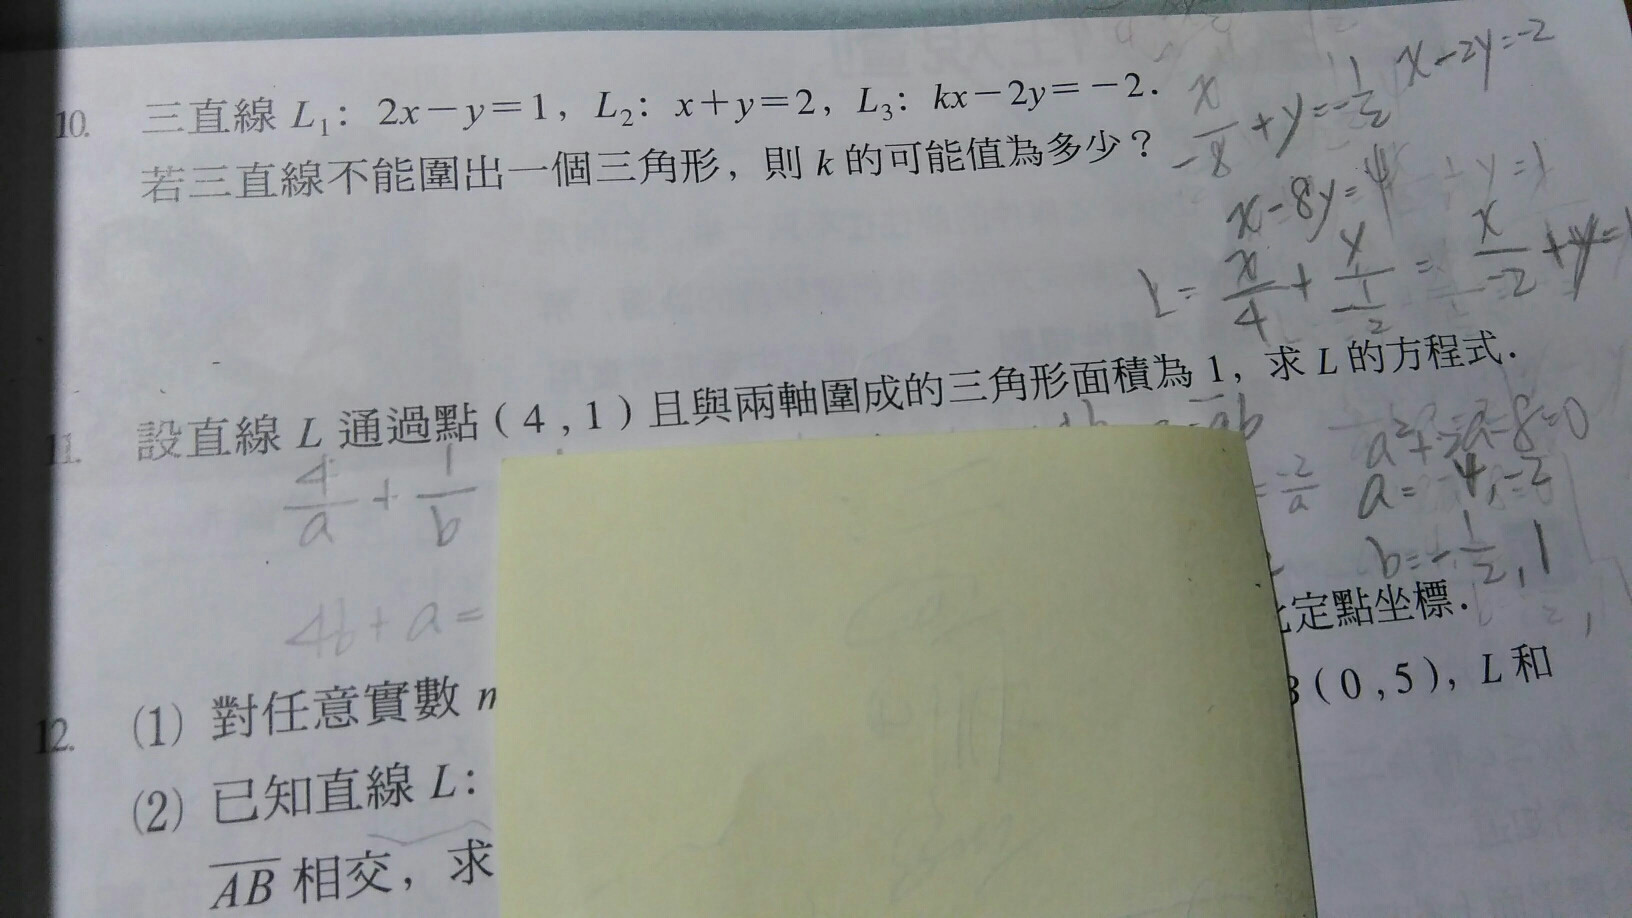 10. 三直線 L₁: 2x－y＝1, L₂: x＋y＝2, L₃: kx－2y＝－2.
若三直線不能圍出一個三角形, 則 k 的可能值為多少?
x-2y=-2
x/-8 + y = -1/2
x-8y=4
L= x/4 + y/(-1/2) = x/-2 + y=1
11. 設直線 L 通過點 ( 4 , 1 ) 且與兩軸圍成的三角形面積為 1, 求 L 的方程式.
4/a + 1/b
= -2/a
a=-4,-2
b=-1/2,1
4b+a=
定點坐標.
12. (1) 對任意實數
( 0 , 5 ), L 和
(2) 已知直線 L:
AB 相交, 求